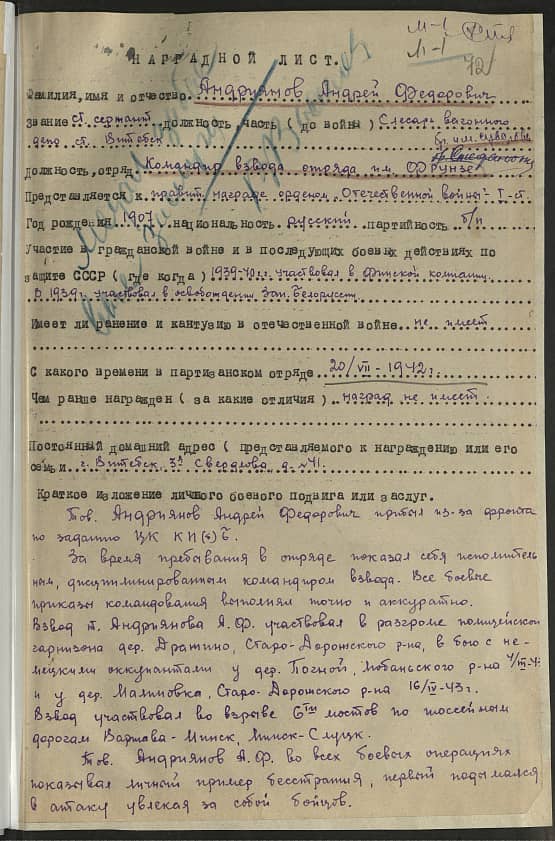 М-1
72
НАГРАДНОЙ ЛИСТ.
Фамилия, имя и отчество Андриянов Андрей Федорович
Звание ст. сержант должность часть ( до войны) Слесарь вагонного
депо, ст. Витебск
Должность, отряд. Командир взвода отряда им. ФРУНЗЕ
Представляется к правит. награде орденом „Отечественной войны" I-ст.
Год рождения 1907 национальность русский партийность б/п
Участие в гражданской войне и в последующих боевых действиях по
защите СССР ( где когда) 1939-40 г.г. участвовал в Финской компании.
В 1939 г. участвовал в освобождении Зап. Белоруссии
Имеет ли ранение и кантузию в отечественной войне.. не имеет
С какого времени в партизанском отряде 20/VII-1942 г.
Чем ранше награжден ( за какие отличия) наград не имеет
Постоянный домашний адрес ( представляемого к награждению или его
семьи. г. Витебск, Свердлова, д. №41.
Краткое изложение личного боевого подвига или заслуг.
Тов. Андриянов Андрей Федорович прибыл из-за фронта
по заданию ЦК КП(б)Б.
За время пребывания в отряде показал себя исполнитель
ным, дисциплинированным командиром взвода. Все боевые
приказы командования выполнял точно и аккуратно.
Взвод т. Андриянова А.Ф. участвовал в разгроме полицейского
гарнизона дер. Дражно, Старо-Дорожского р-на, в бою с не-
мецкими оккупантами у дер. Погной, Любаньского р-на
и у дер. Малиновка, Старо-Дорожского р-на 16/IV-43 г.
Взвод участвовал во взрыве 6ти мостов по шоссейным
дорогам Варшава-Минск, Минск-Слуцк.
Тов. Андриянов А.Ф. во всех боевых операциях
показывал личный пример бесстрашия, первый подымался
в атаку увлекая за собой бойцов.